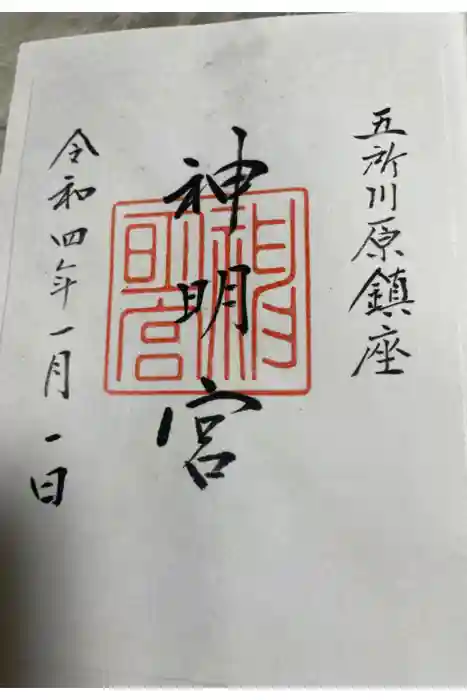 五所川原鎮座
神明宮
令和四年一月一日